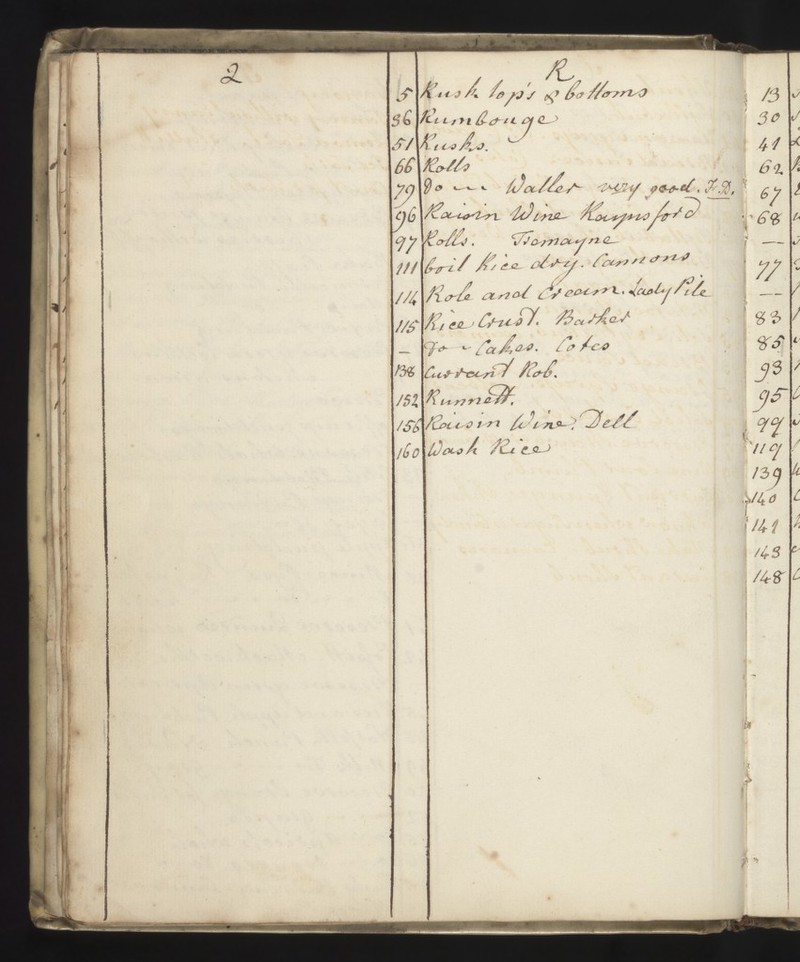 2
R
5 Rusk top's & bottoms
36 Rumbouge
51 Rusks.
66 Rolls
79 Do Waller very good. F.D.
96 Raisin Wine Raynsford
97 Rolls. Tremayne
111 boil Rice dry. Cannons
114 Role and Cream. Lady Pile
115 Rice Crust. Barker
— Do Cakes. Cotes
138 Currant Rob.
152 Runnett.
156 Raisin Wine. Dell
160 Wash Rice
13
30
41
62
67
68
—
77
—
83
85
93
95
99
119
139
140
141
143
148